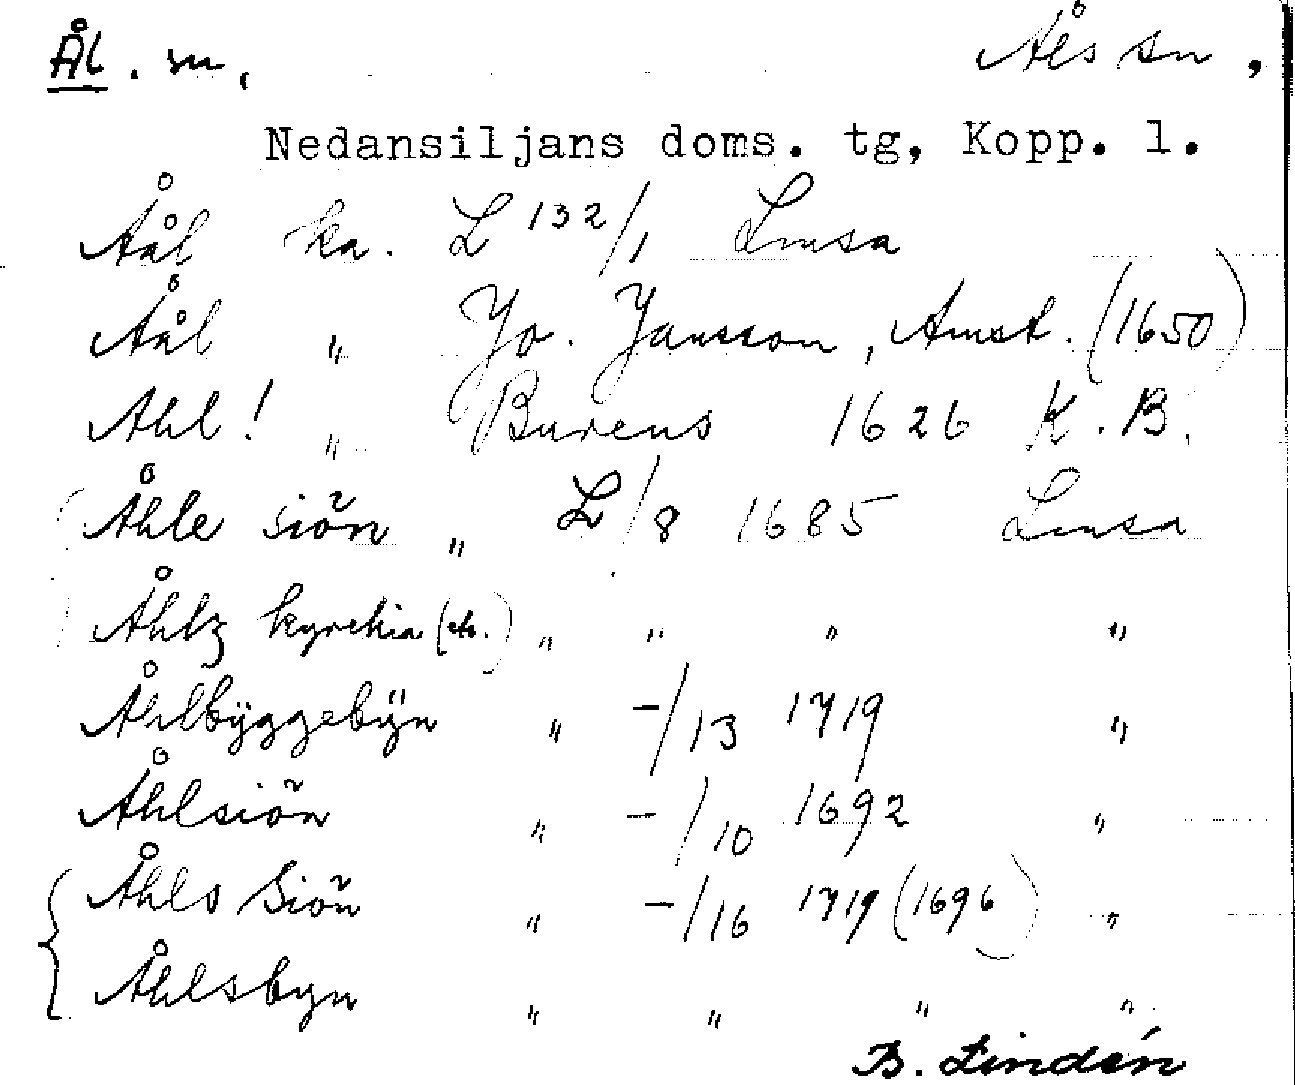 Ål. sn, Åls sn,
Nedansiljans doms. tg, Kopp. l.
Åål ka. L 132/1 Lmsa
Åål " Jo. Jansson, Amst. (1650)
Ahl! " Bureus 1626 K.B.
Åhle siön " L/8 1685 Lmsa
Åhlz kyrckia (etc.) " " " "
Åhlbÿggebÿn " -/13 1719 "
Åhlsiön " -/10 1692 "
Åhls Siön " -/16 1719 (1696) "
Åhlsbyn " " " "
B. Lindén